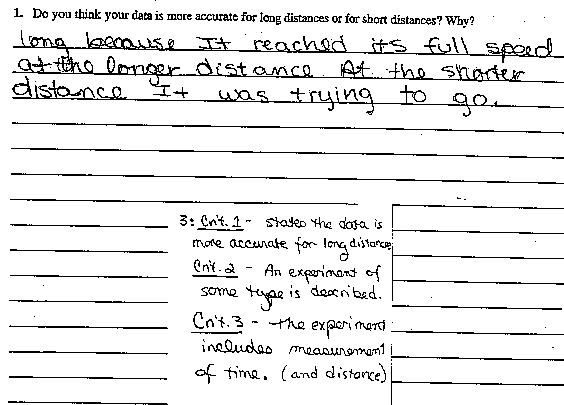 1. Do you think your data is more accurate for long distances or for short distances? Why?
long because It reached its full speed
at the longer distance At the shorter
distance It was trying to go.
3: Crit. 1 - states the data is
more accurate for long distance
Crit. 2 - An experiment of
some type is described.
Crit. 3 - the experiment
includes measurement
of time. (and distance)